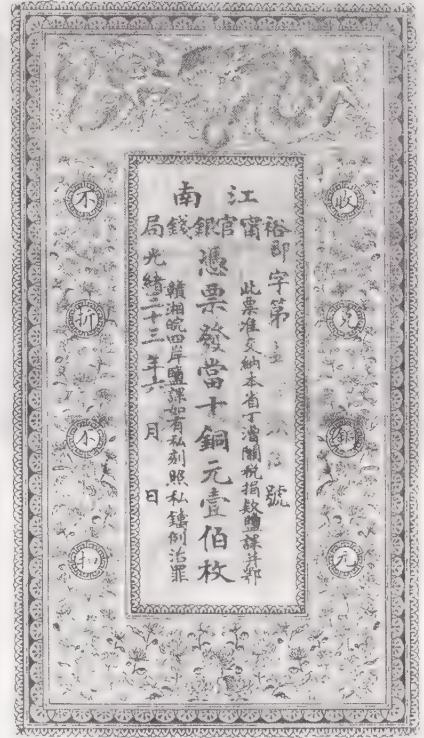 江南
裕甯官銀錢局
字第
號
此票准交納本省丁漕關稅捐款鹽課并鄂
憑票發當十銅元壹佰枚
贛湘皖四岸鹽課如有私刻照私鑄例治罪
光緒三十三年六月 日
收兌銀元
不折不扣